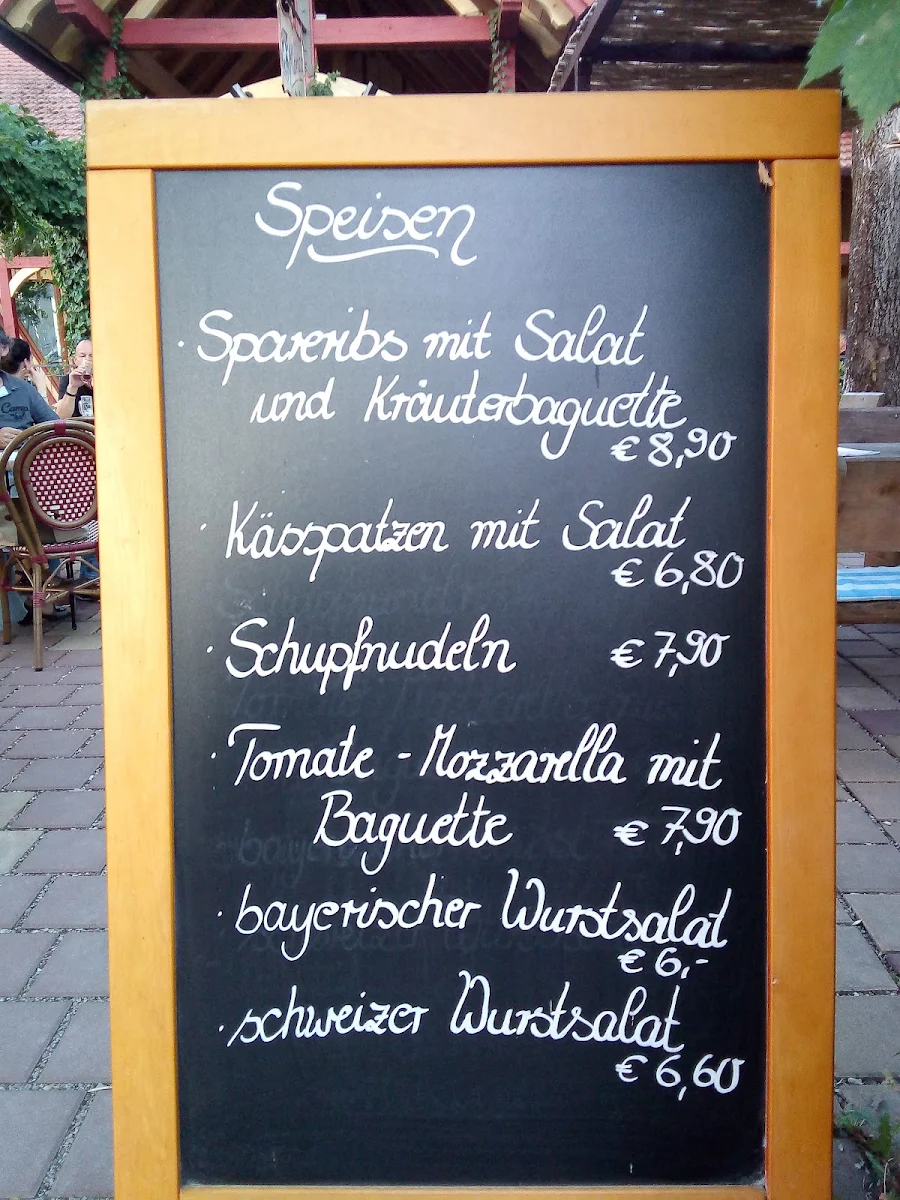 Speisen
· Spareribs mit Salat
und Kräuterbaguette
€ 8,90
· Kässpatzen mit Salat
€ 6,80
· Schupfnudeln € 7,90
· Tomate - Mozzarella mit
Baguette € 7,90
· bayerischer Wurstsalat
€ 6,-
· schweizer Wurstsalat
€ 6,60
Camp